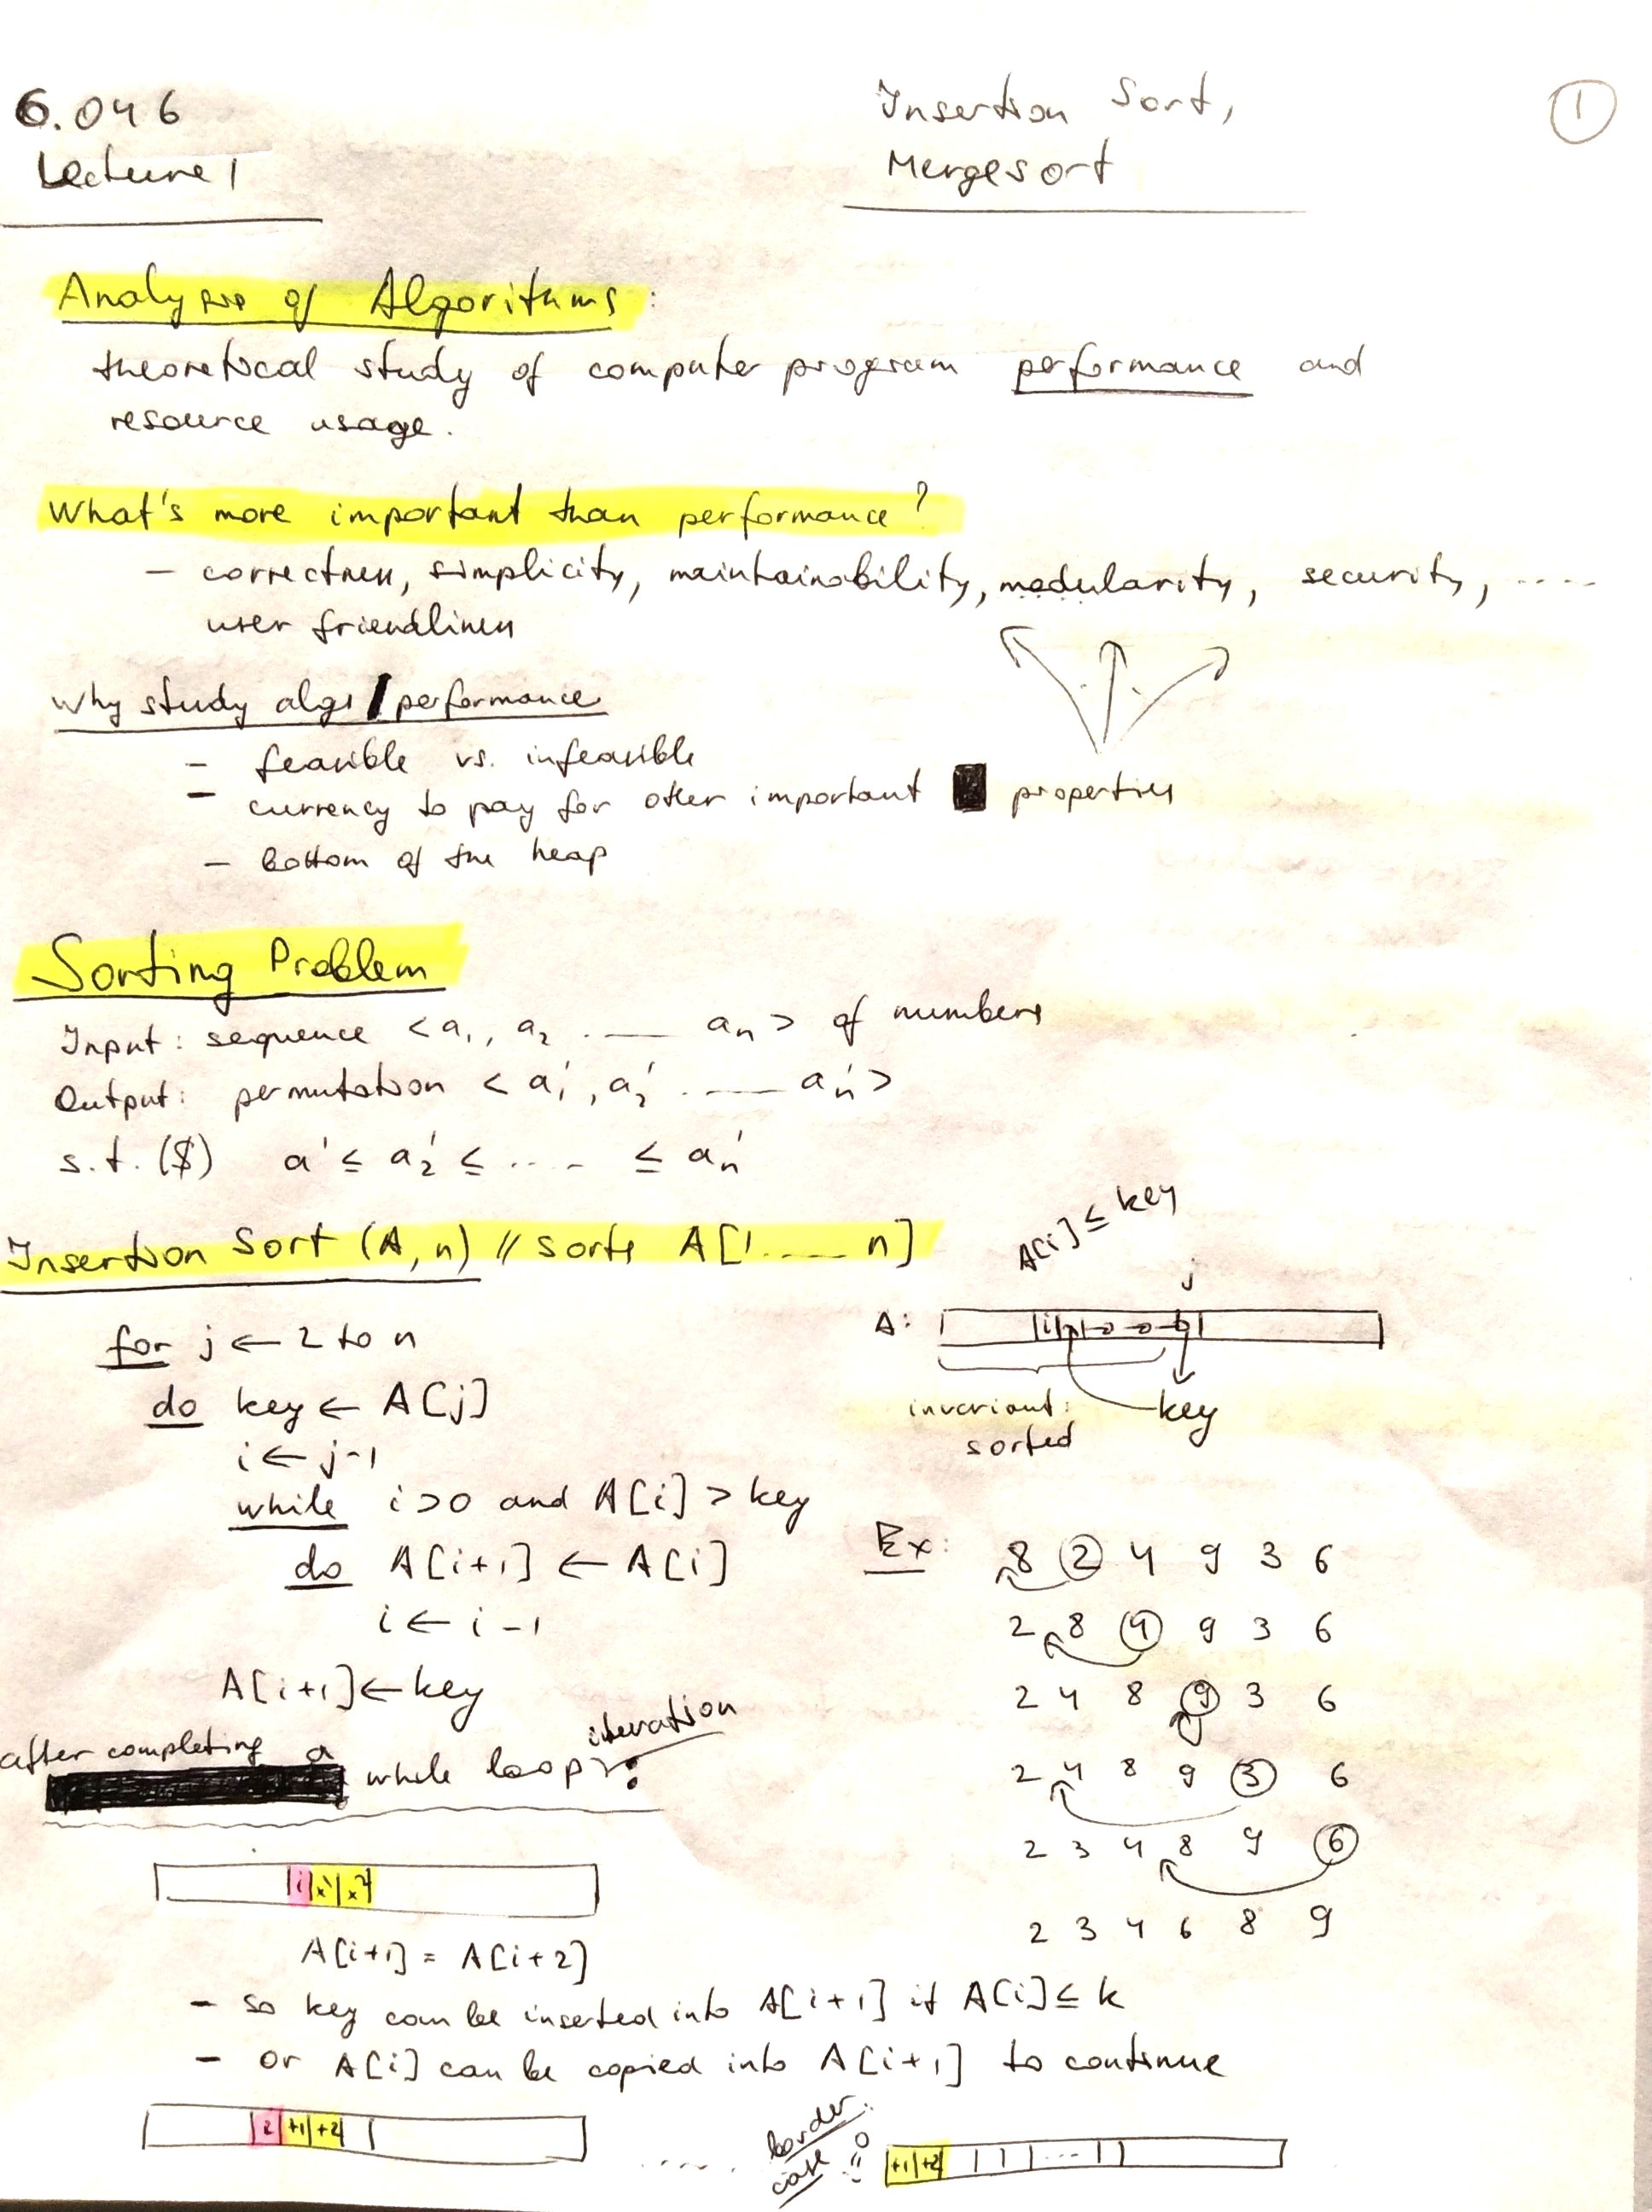 6.046
Lecture 1
Insertion Sort,
Mergesort
1
Analysis of Algorithms:
theoretical study of computer program performance and
resource usage.
What's more important than performance?
- correctness, simplicity, maintainability, modularity, security, ....
user friendliness
Why study algs / performance
- feasible vs. infeasible
- currency to pay for other important properties
- bottom of the heap
Sorting Problem
Input: sequence <a₁, a₂ .... aₙ> of numbers
Output: permutation <a₁', a₂' .... aₙ'>
s.t. ($) a' ≤ a₂' ≤ .... ≤ aₙ'
Insertion Sort (A, n) // sorts A[1.... n]
for j ← 2 to n
do key ← A[j]
i ← j-1
while i>0 and A[i] > key
do A[i+1] ← A[i]
i ← i-1
A[i+1] ← key
A[i] ≤ key
j
A:
i
invariant:
sorted
key
Ex: 8 2 4 9 3 6
2 8 4 9 3 6
2 4 8 9 3 6
2 4 8 9 3 6
2 3 4 8 9 6
2 3 4 6 8 9
after completing a while loop iteration:
i
A[i+1] = A[i+2]
- so key can be inserted into A[i+1] if A[i] ≤ k
- or A[i] can be copied into A[i+1] to continue
i +1 +2
.....
border case i=0
+1 +2 ...